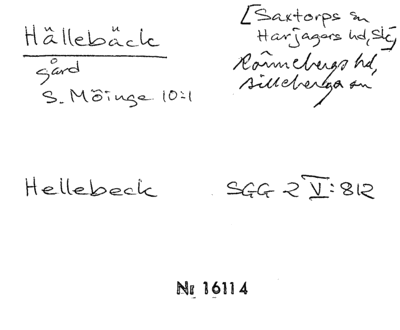 Hällebäck
gård
S. Möinge 10:1
[Saxtorps sn
Harjagers hd, Sk]
Rönnebergs hd,
Sillebergs sn
Hellebeck
SGG 2 V: 812
Nr 16114